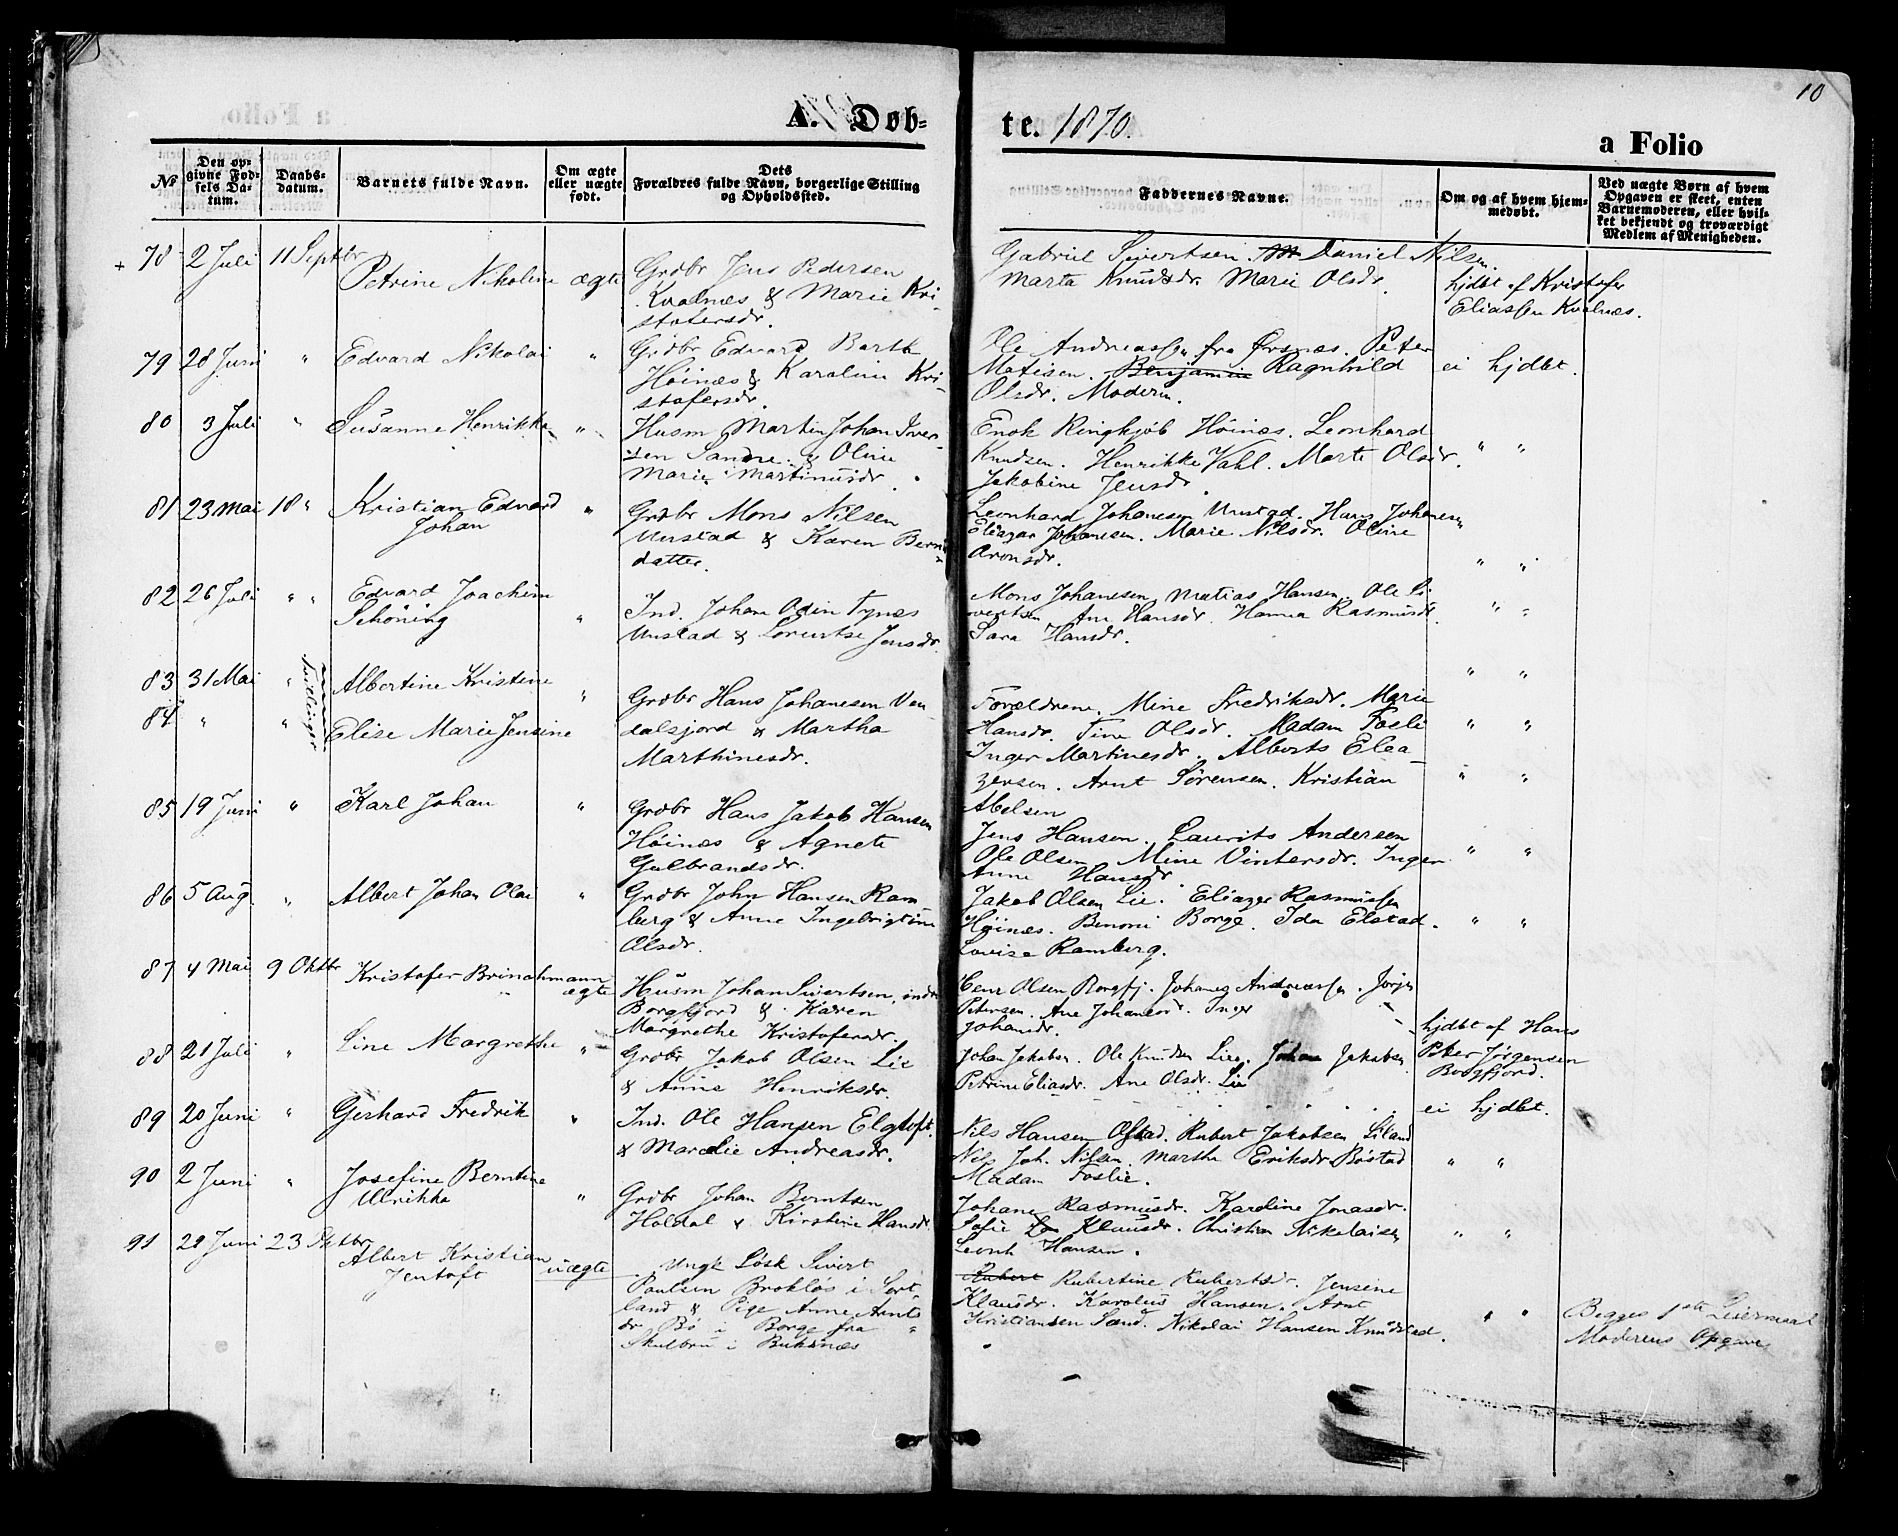 10
A. Døb-
te. 1870.
a Folio
№
Den op-
givne Fød-
sels Da-
tum.
Daabs-
datum.
Barnets fulde Navn.
Om ægte
eller uægte
født.
Dets
Forældres fulde Navn, borgerlige Stilling
og Opholdssted.
Faddernes Navne.
Om og af hvem hjem-
medøbt.
Ved uægte Børn af hvem
Opgaven er skeet, enten
Barnemoderen, eller hvil-
ket bekjendt og troværdigt
Medlem af Menigheden.
+ 78 2 Juli 11 Septbr
Petrine Nikoline ægte
Grdbr Jens Pedersen
Kvalnæs & Marie Kri-
stofersdr.
Gabriel Sivertsen. Daniel Nilsen.
Marta Knudsdr. Marie Olsdr.
hjdbt af Kristofer
Eliassen Kvalnæs.
79 28 Juni " Edvard Nikolai "
Grdbr Edvard Barth
Høinæs & Karoline Kri-
stofersdr.
Ole Andreassen fra Ørsnæs. Peter
Matisen. Benjamin Ragnhild
Olsdr. Moderen.
ei hjdbt.
80 3 Juli " Susanne Henrikke "
Husm Martin Johan Iver-
sen Sandre. & Oline
Marie Martinusdr.
Enok Ringkjøb Høinæs. Leonhard
Knudsen. Henrikke Vahl. Marte Olsdr.
Jakobine Jensdr.
" "
81 23 Mai 18 " Kristian Edvard
Johan "
Grdbr Mons Nilsen
Unstad & Karen Bernt-
datter.
Leonhard Johanesen Unstad. Hans Johanesen
Eleazar Johanesen. Marie Nilsdr. Oline
Aronsdr.
" "
82 26 Juli " " Edvard Joachim
Schöning "
Ind. Johan Odin Tynes
Unstad & Lorentse Jensdr.
Mons Johanesen, Matias Hansen. Ole Si-
vertsen Ane Hansdr. Hanna Rasmusdr.
Sara Hansdr.
" "
83 31 Mai " Tvillinger Albertine Kristine "
84 " " Elise Marie Jensine
Grdbr Hans Johanesen Ven-
dalsjord & Martha
Marthinesdr.
Forældrene. Mine Fredriksdr. Marie
Hansdr. Tine Olsdr. Madam Foslie
Inger Martinesdr. Alberts Elea-
zersen. Arnt Sørensen. Kristian
Abelsen
" "
" "
85 19 Juni " Karl Johan "
Grdbr Hans Jakob Hansen
Høinæs & Agnete
Gulbrandsdr.
Jens Hansen. Laurits Andersen
Ole Olsen. Mine Vintersdr. Inger
Anne Hansdr.
" "
86 5 Aug. " Albert Johan Olai "
Grdbr John Hansen Ram-
berg & Anne Ingebrigtine
Olsdr.
Jakob Olsen Lie. Eleazer Rasmussen
Høinæs. Benoni Borge. Ida Elstad.
Lovise Ramberg.
" "
87 4 Mai 9 Oktbr Kristofer Brinchmann
ægte
Husm Johan Sivertsen, indre
Borgfjord & Karen
Margrethe Kristofersdr.
Olsen Borgfj. Johanes Andreassen. Jørgen
Petersen. Ane Johansdr. Inger
Johansdr.
hjdbt af Hans
Peter Jörgensen
Borgfjord.
88 21 Juli " Line Margrethe "
Grdbr Jakob Olsen Lie
& Anne Henriksdr.
Johan Jakobsen. Ole Knudsen Lie. Johan Jakobsen
Petrine Eliasdr. Ane Olsdr. Lie
ei hjdbt.
89 20 Juni " Gerhard Fredrik "
Ind. Ole Hansen Elgtoft.
& Marelie Andreasdr.
Nils Hansen Ofstad. Rubert Jakobsen Liland
Nils Joh. Nilsen Marthe Eriksdr. Bøstad
Madam Foslie.
" "
90 2 Juni " Josefine Berntine
Ulrikke "
Grdbr Johan Berntsen
Holdal & Kirstine Hansdr.
Johane Rasmusdr. Karoline Jonasdr.
Sofie Klausdr. Christian Nikolaisen
Leonh Hansen.
" "
91 29 Juni 23 Oktbr Albert Kristian
Jentoft uægte
Ungk Løsk Sivert
Poulsen Brokløs i Sort-
land & Pige Anne Arnts-
dr Bø i Borge fra
Skulbru i Buksnæs
Rubert Rubertine Rubertsdr. Jensine
Klausdr. Karolus Hansen. Arnt
Kristiansen Sand. Nikolai Hansen Knudstad.
" "
Begges 1ste Leiermaal
Moderens Opgave